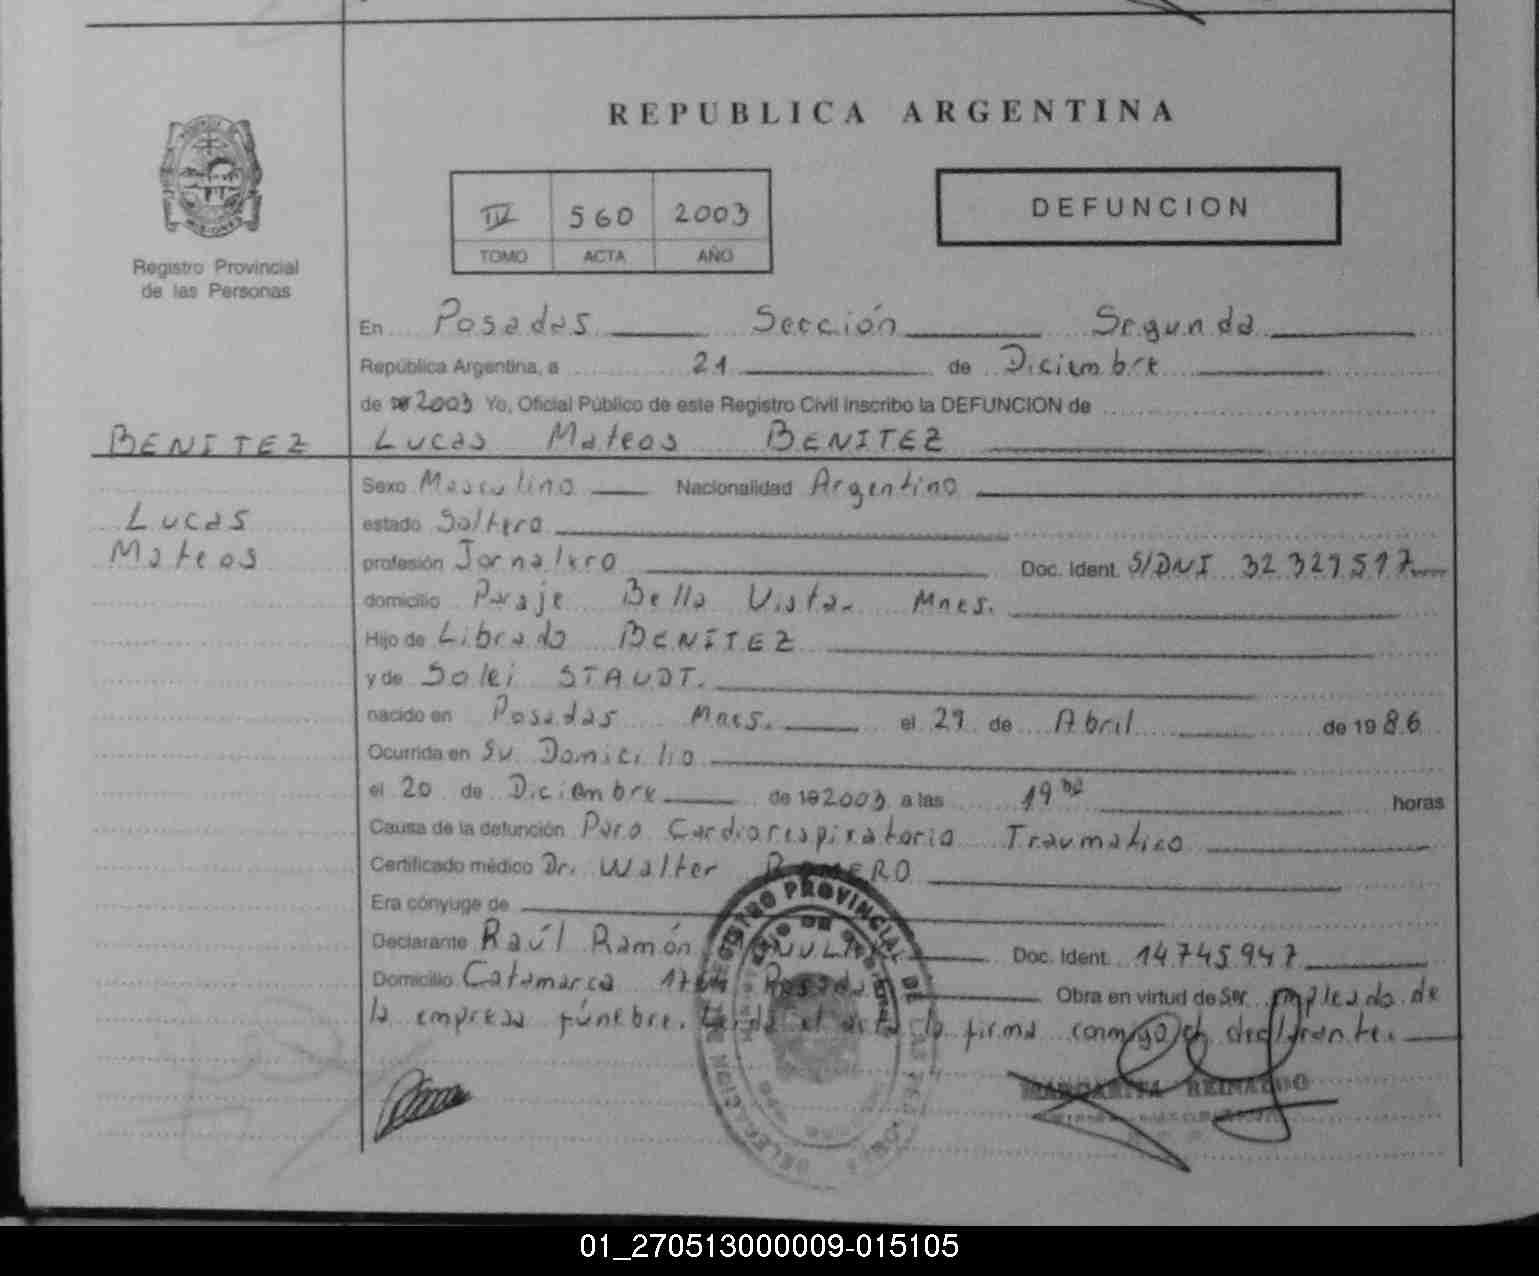 REPUBLICA ARGENTINA
IV 560 2003
TOMO ACTA AÑO
DEFUNCION
Registro Provincial
de las Personas
En Posadas Sección Segunda
República Argentina, a 21 de Diciembre
de 2003 Yo, Oficial Público de este Registro Civil inscribo la DEFUNCION de
BENITEZ
Lucas
Mateos
Lucas Mateos BENITEZ
Sexo Masculino Nacionalidad Argentino
estado Soltero
profesión Jornalero Doc. Ident. S/DNI
domicilio Paraje Bella Vista- Mnes.
Hijo de Librado BENITEZ
y de Solei STAUDT.
nacido en Posadas Mnes. el de Abril de 1986
Ocurrida en Su Domicilio
el 20 de Diciembre de 2003 a las 19 horas
Causa de la defunción Paro Cardiorespiratorio Traumatico
Certificado médico Dr. Walter ROMERO
Era cónyuge de
Declarante Raúl Ramón Doc. Ident. 14.745.947
Domicilio Catamarca Posadas Obra en virtud de Ser empleado de
la empresa fúnebre. Leida el acta la firma conmigo el declarante.
REGISTRO PROVINCIAL DE LAS PERSONAS
MARGARITA REINALDO
01_270513000009-015105